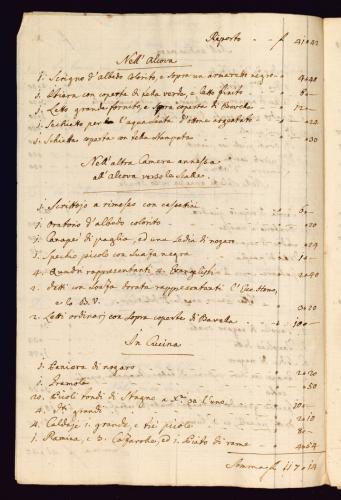 Riporto - - f 41 " 42
Nell'Alcova
1. Scrigno d'albedo colorito, e sopra un armaretto negro - 4 " 40
1. coperta di pelle verde, e letto 8 " —
1. Letto grande fornito, e sopra coperta di 12 " —
1. Sechieto per l'aqua Santa d'ottone argentato " 24
1. coperta con pelle stampata " 30
Nell'altra Camera annessa
all'Alcova verso la Scalla
1. Scrittojo a rimesso con casettini 6 " —
1. Oratorio d'albedo colorito " 20
1. Canapè di paglia, ed una Sedia di nogaro " 24
1. Spechio picolo con Suaza negra 1 " —
4. Quadri rappresentanti 4. Evangelisti 2 " 40
2. detti con Soaza dorata rappresentanti l'Ecce Homo,
e la B. V. 3 " 20
2. Letti ordinarj con sopra coperte di Bavella 10 " —
In Cucina
1. di nogaro 2 " 20
1. Gramola " 50
20. Piati tondi di Stagno a Xni 30 l'uno 10 " —
4. dti grandi 2 " 10
4. Caldaje 1. grande, e tre picole 8 " —
1. Ramina, e 3. ed 1. Piato di rame 4 " 54
117 " 14